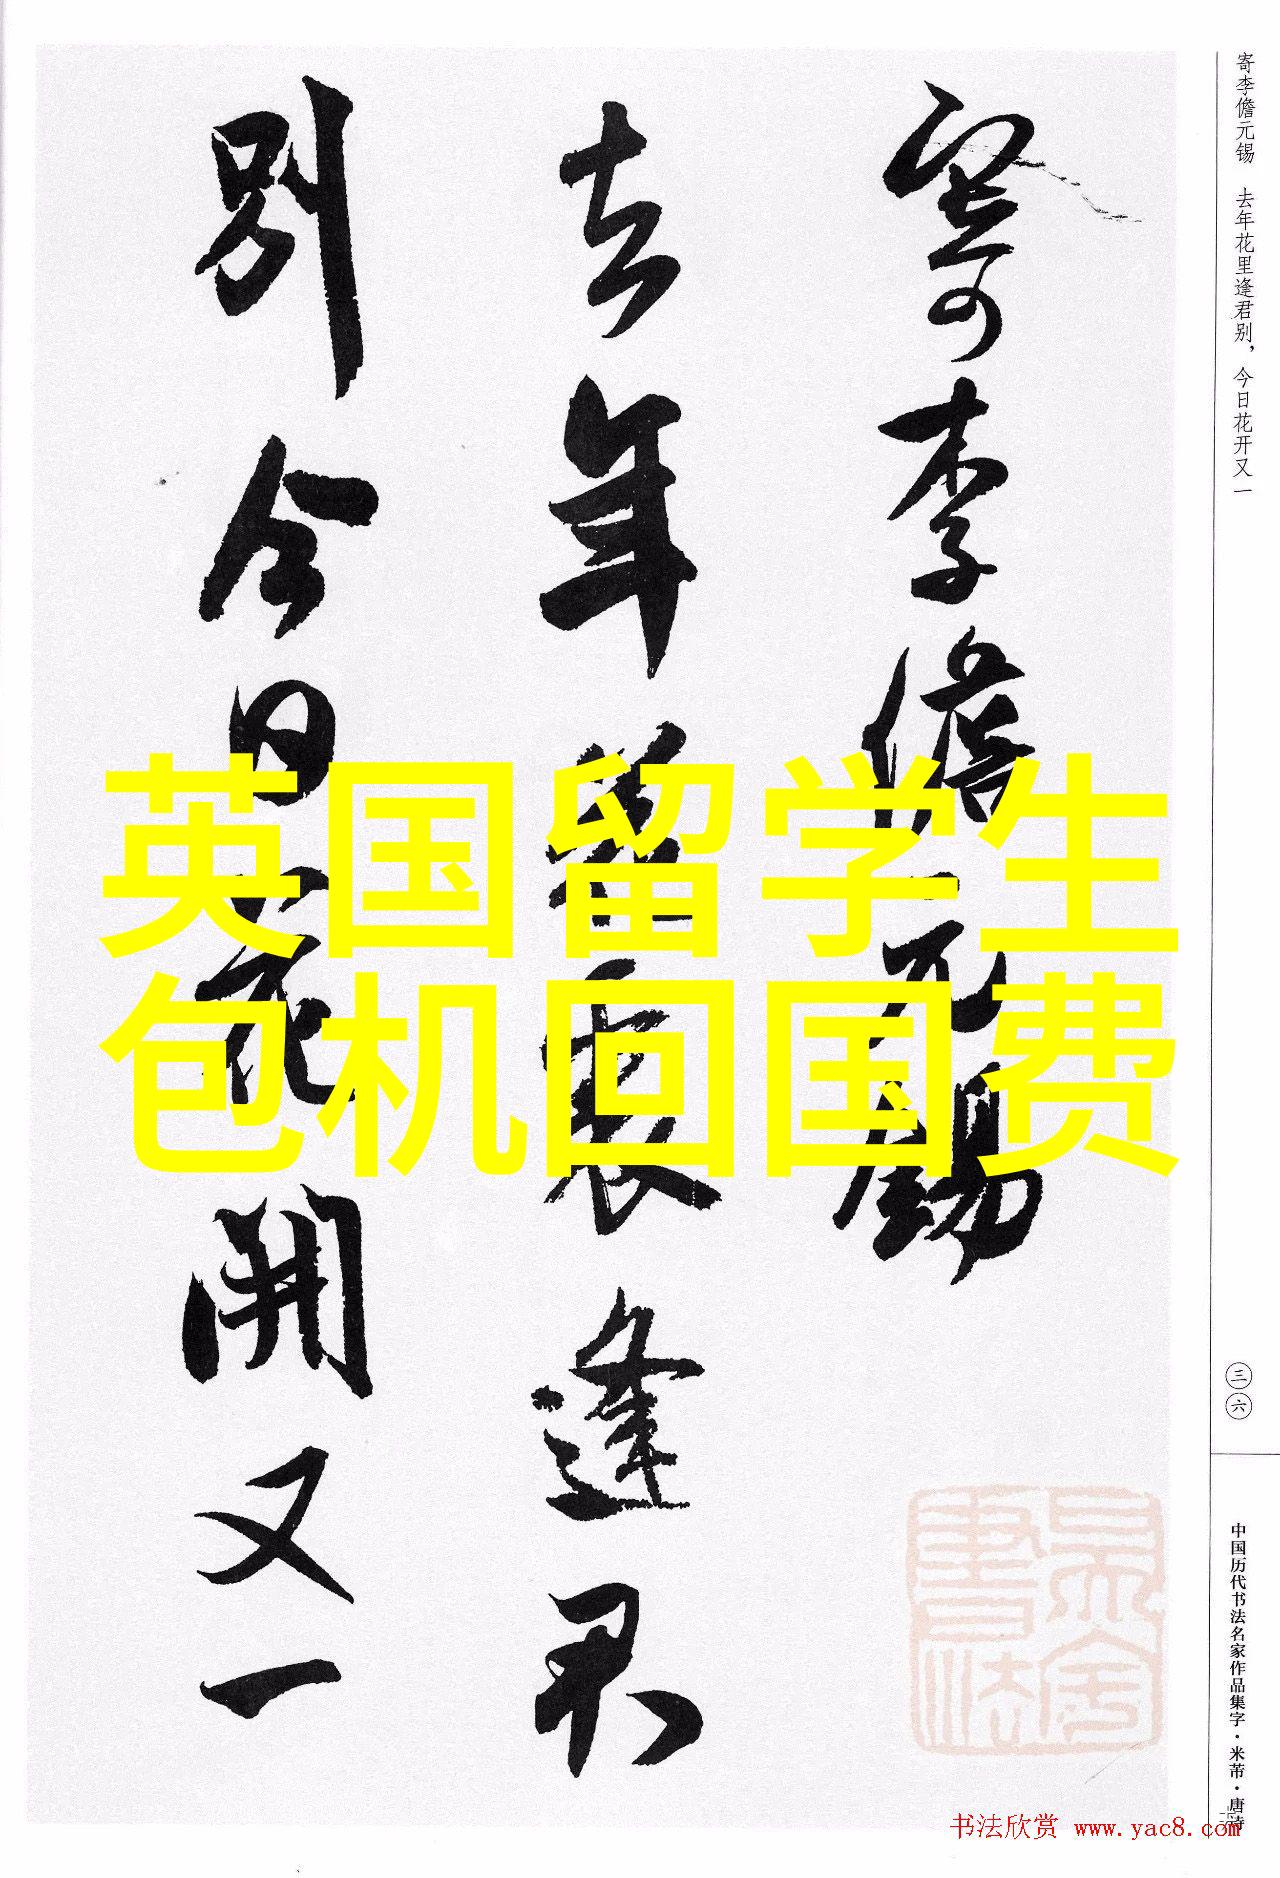 寄李儋元锡 去年花里逢君别，今日花开又一
寄李儋元锡
去年花裏逢君
别今日花開又一
英国留学生
包机回国费
三六
中国历代书法名家作品集字·米芾·唐诗
书法欣赏 www.yac8.com